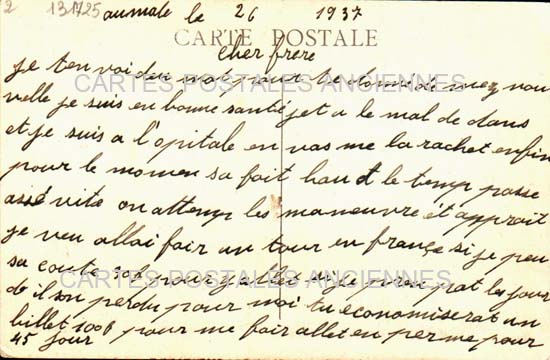 2 131725 aumale le 26 1937
CARTE POSTALE
cher frere
je ten voi deu mo pour te doné de mez nou
CARTES POSTALES ANCIENNES
velle je suis en bonne santé jet a le mal de dans
et je suis a l'opitale en vas me la rachet enfin
pour le momen sa fait hau le temp passe
assé vite on attemp les maneuvre ét apprait
je veu allai fair un tour en françe si je peu
sa coute pour les jour
CARTES POSTALES ANCIENNES
de il son perdu pour moi tu economiserat un
billet 100f pour me fair allet en perme pour
45 jour